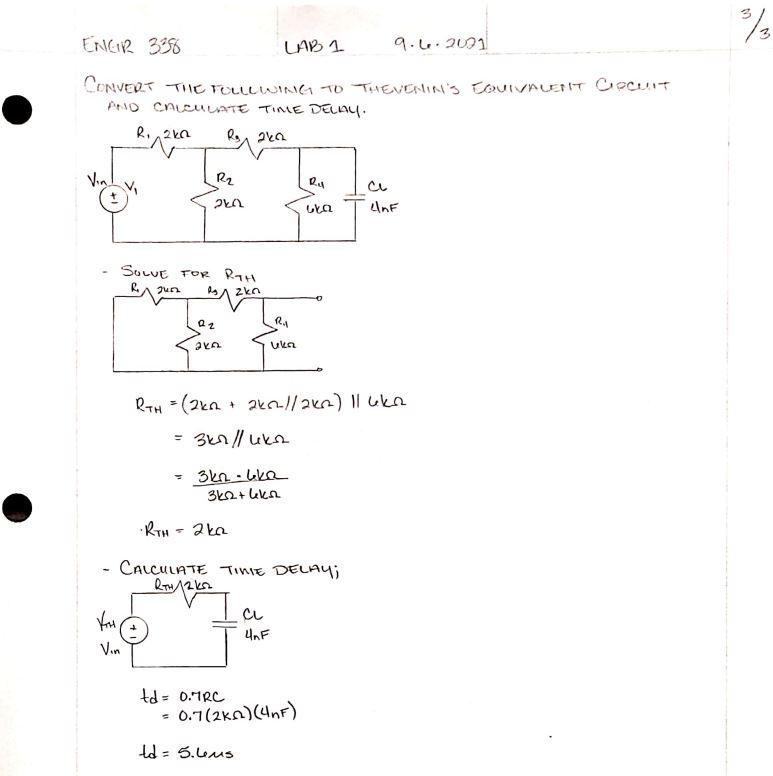 3/3
ENGR 338 LAB 1 9.6.2021
CONVERT THE FOLLOWING TO THEVENIN'S EQUIVALENT CIRCUIT
AND CALCULATE TIME DELAY.
R1 2kΩ R3 2kΩ
Vin V1 R2 R4 CL
2kΩ 6kΩ 4nF
- SOLVE FOR RTH
R1 2kΩ R3 2kΩ
R2 R4
2kΩ 6kΩ
RTH = (2kΩ + 2kΩ//2kΩ) || 6kΩ
= 3kΩ // 6kΩ
= 3kΩ · 6kΩ
3kΩ + 6kΩ
·RTH = 2kΩ
- CALCULATE TIME DELAY;
RTH 2kΩ
VTH CL
Vin 4nF
td = 0.7RC
= 0.7(2kΩ)(4nF)
td = 5.6us